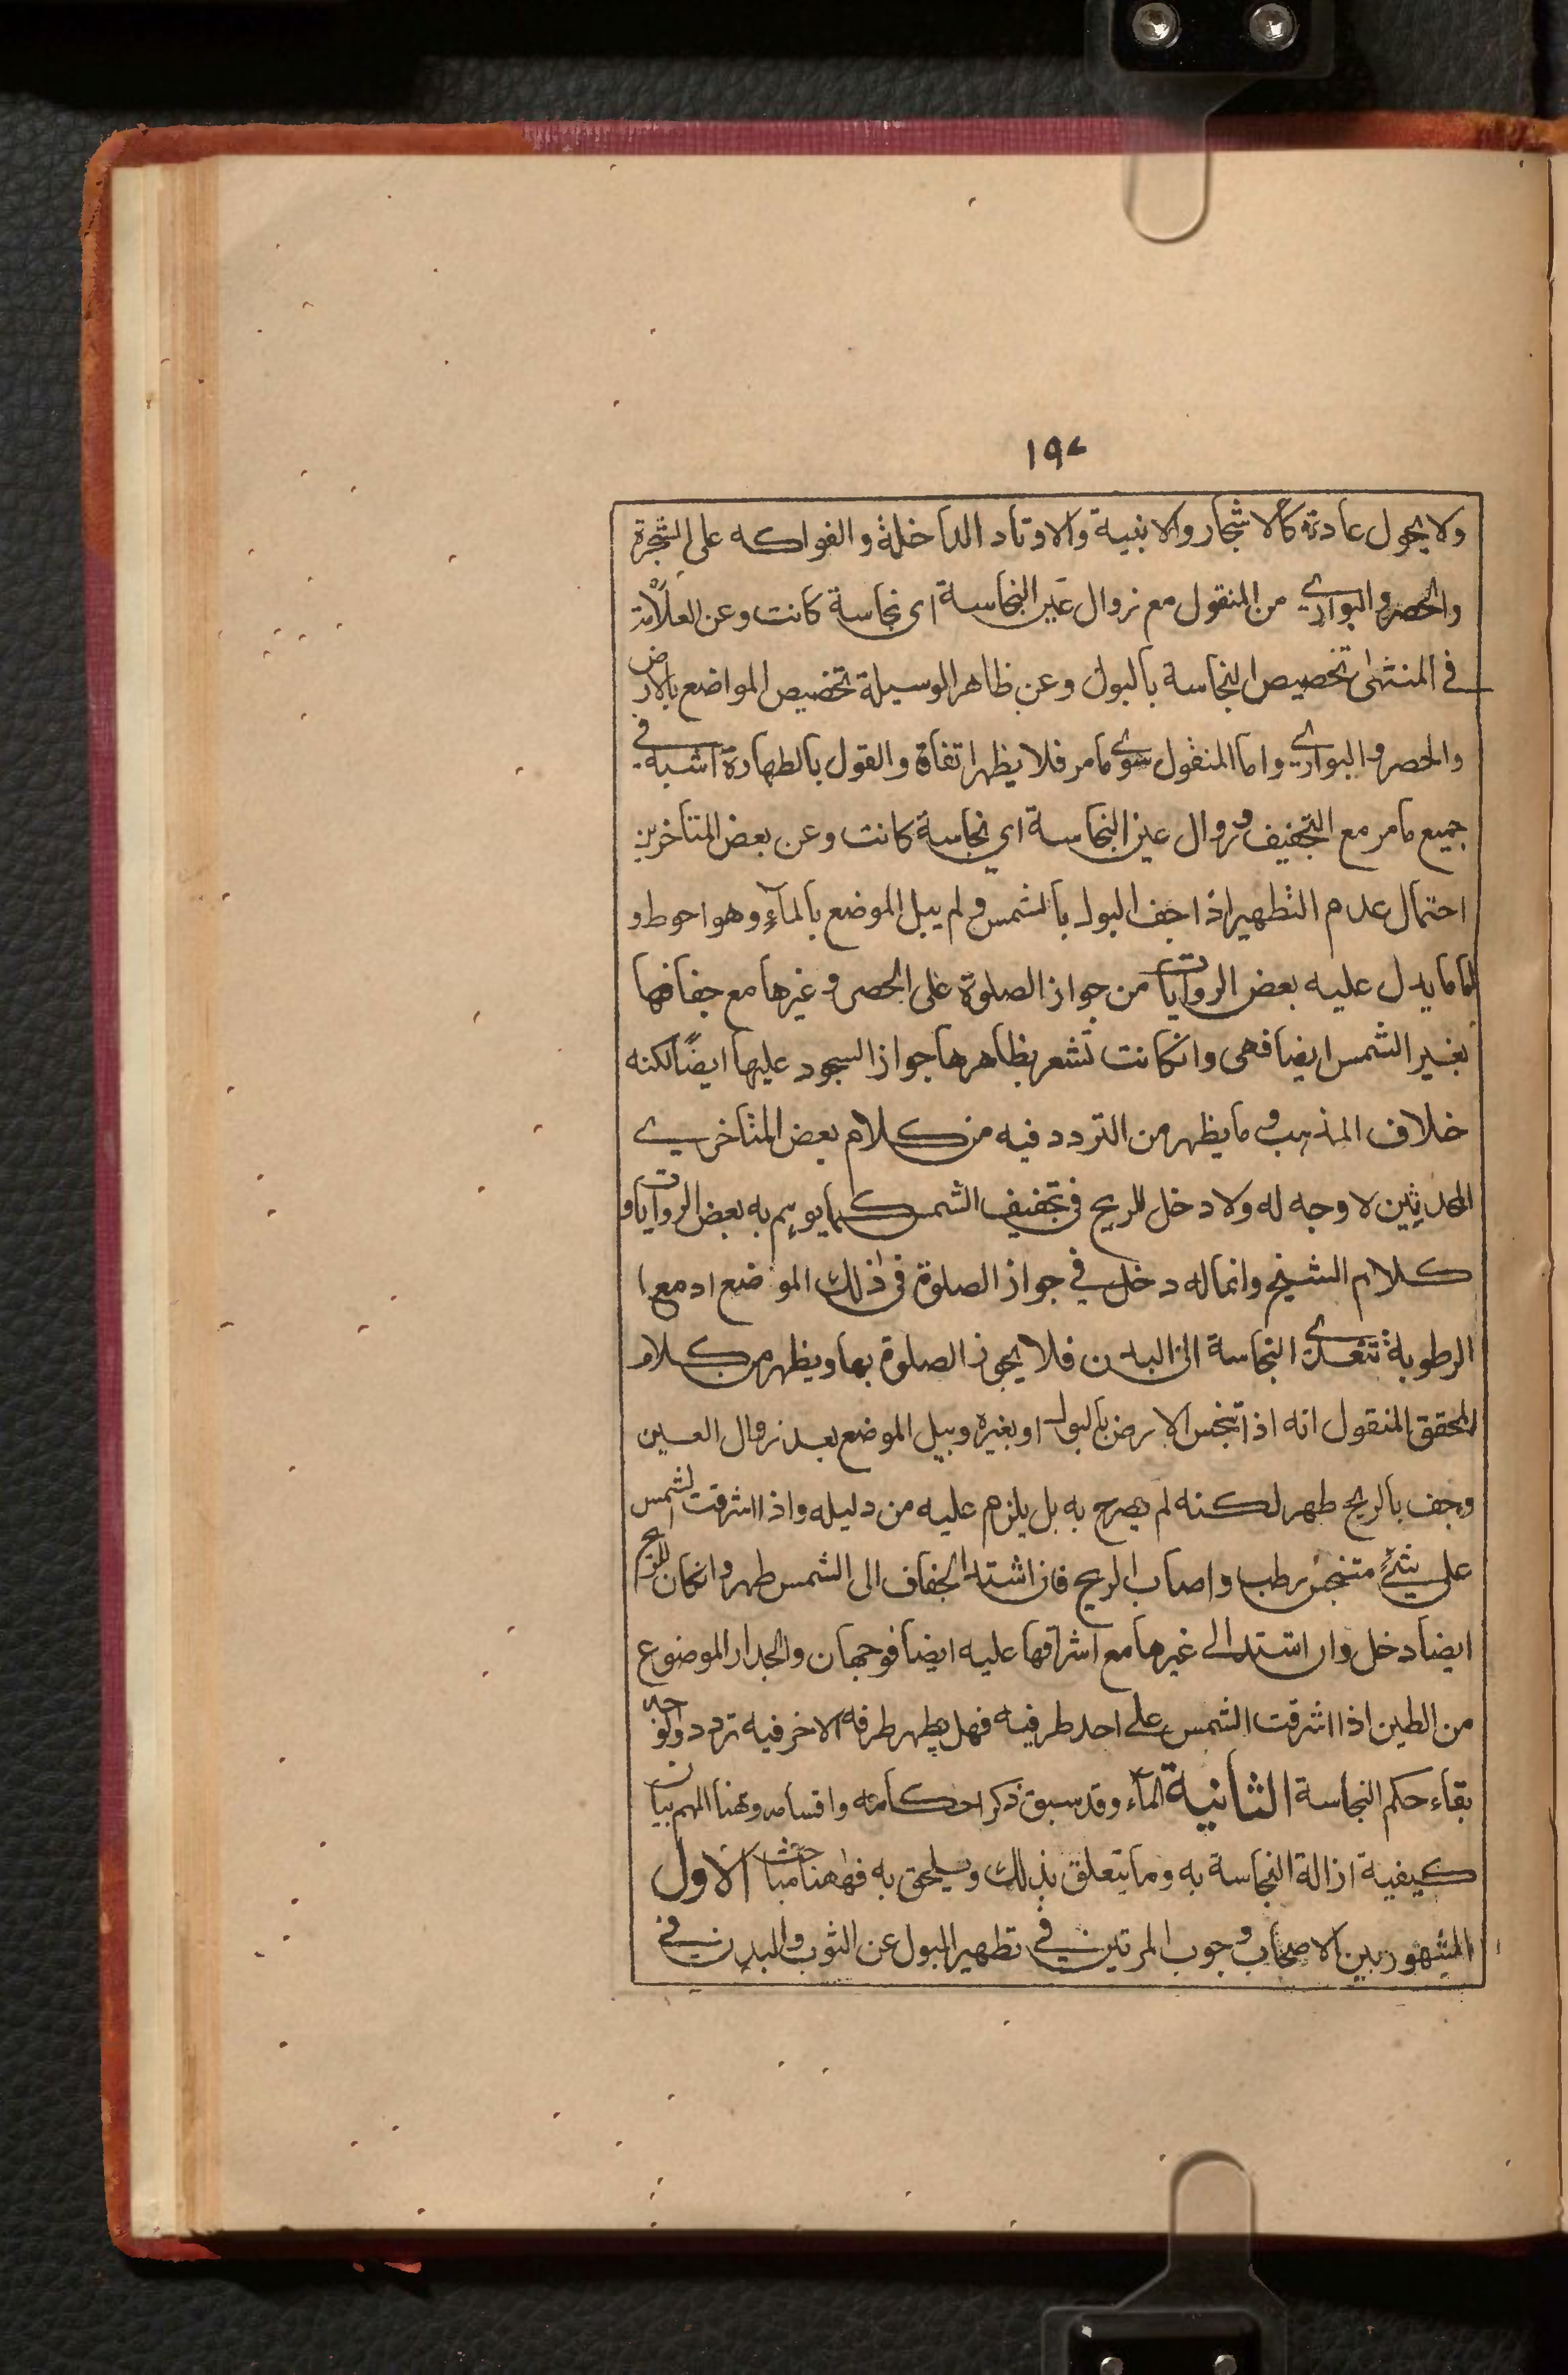 ١٩٧
ولا يحول عادتة كالاشجار والابنية والاوتاد الداخلة والفواكه على الشجرة
والحصر والبوارى من المنقول مع زوال عين النجاسة اى نجاسة كانت وعن العلامة
فى المنتهى تخصيص النجاسة بالبول وعن ظاهر الوسيلة تخصيص المواضع بالارض
والحصر و البوارى واما المنقول سوى مامر فلا يظهر اتفاق والقول بالطهارة اشبه فى
جميع مامر مع التجفيف وزوال عين النجاسة اي نجاسة كانت وعن بعض المتاخرين
احتمال عدم التطهير اذا جف البول بالشمس و لم يبل الموضع بالمآء وهو احوط و
اما مايدل عليه بعض الروايات من جواز الصلوة على الحصر و غيرها مع جفافها
بغير الشمس ايضا فهى وانكانت تشعر بظاهرها جواز السجود عليها ايضًا لكنه
خلاف المذهب و ما يظهر من التردد فيه من كلام بعض المتاخرى
المحدثين لا وجه له ولا دخل للريح فى تجفيف الشمس كما يوهم به بعض الروايات و
كلام الشيخ وانما له دخل في جواز الصلوة فى ذلك الموضع اذ مع
الرطوبة تتعدى النجاسة الى البدن فلا يجوز الصلوة بها ويظهر من كلام
المحقق المنقول انه اذا تنجس الارض بالبول او بغيره ويبل الموضع بعد زوال العين
وجف بالريح طهر لكنه لم يصرح به بل يلزم عليه من دليله واذا اشرقت الشمس
على شئ متنجس رطب و اصاب الريح فان اشتد الجفاف الى الشمس طهر وانكان للريح
ايضا دخل وان استند الى غيرها مع اشراقها عليه ايضا فوجهان والجدار الموضوع
من الطين اذا اشرقت الشمس على احد طرفيه فهل يطهر طرفه الاخر فيه تردد والوجه
بقاء حكم النجاسة الثانية المآء وقد سبق ذكر احكامه واقسامه وههنا المهم بيان
كيفية ازالة النجاسة به وما يتعلق بذلك ويلحق به فههنا مباحث الاول
المشهور بين الاصحاب وجوب المرتين فى تطهير البول عن الثوب والبدن فى